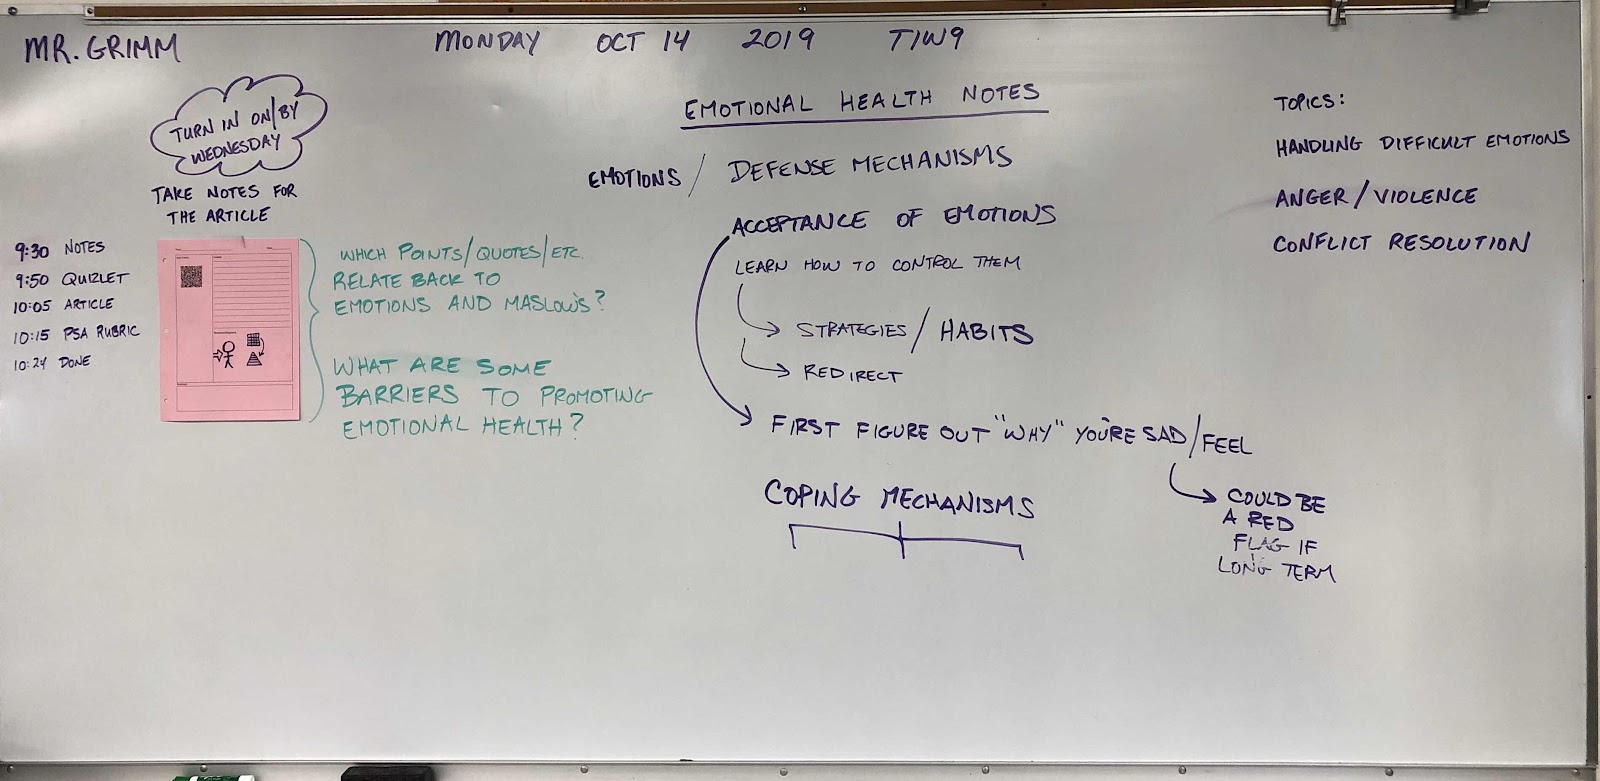 MR. GRIMM
MONDAY OCT 14 2019 T1W9
TURN IN ON/BY
WEDNESDAY
TAKE NOTES FOR
THE ARTICLE
9:30 NOTES
9:50 QUIZLET
10:05 ARTICLE
10:15 PSA RUBRIC
10:24 DONE
WHICH POINTS/QUOTES/ETC.
RELATE BACK TO
EMOTIONS AND MASLOW'S?
WHAT ARE SOME
BARRIERS TO PROMOTING
EMOTIONAL HEALTH?
EMOTIONAL HEALTH NOTES
EMOTIONS / DEFENSE MECHANISMS
ACCEPTANCE OF EMOTIONS
LEARN HOW TO CONTROL THEM
STRATEGIES / HABITS
REDIRECT
FIRST FIGURE OUT "WHY" YOU'RE SAD/FEEL
COULD BE
A RED
FLAG IF
LONG TERM
COPING MECHANISMS
TOPICS:
HANDLING DIFFICULT EMOTIONS
ANGER/VIOLENCE
CONFLICT RESOLUTION